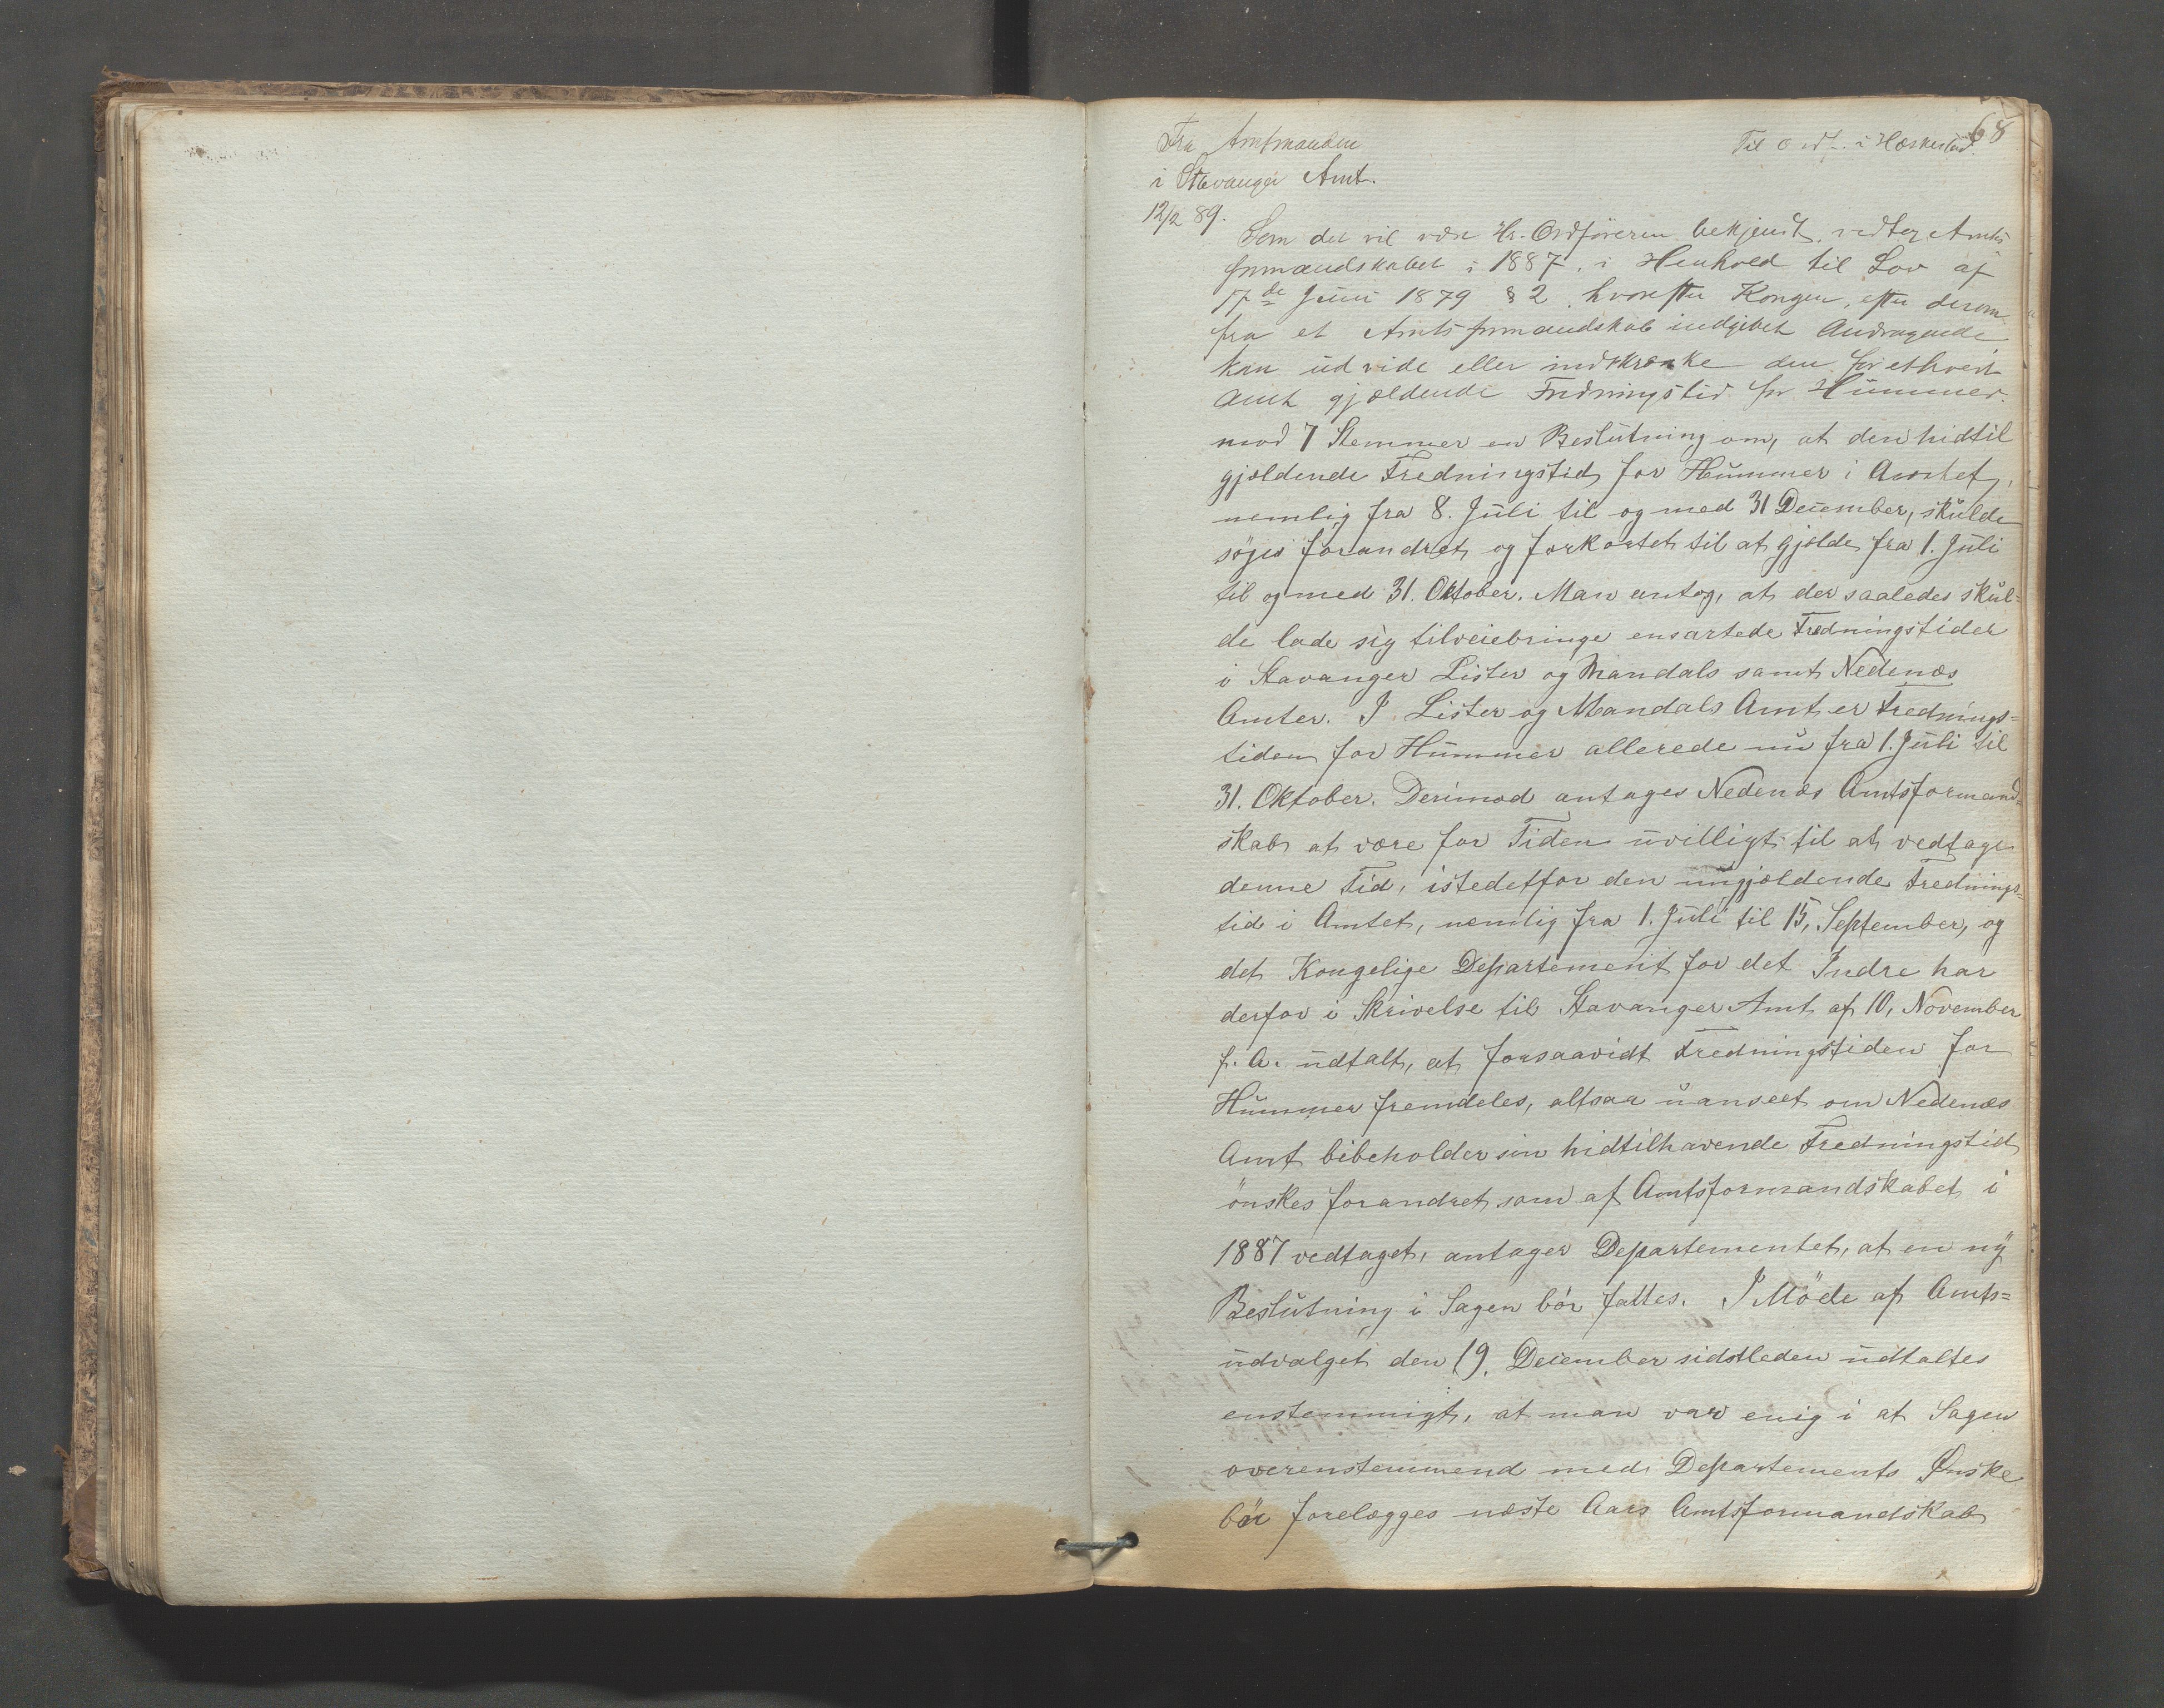 68
Fra Amtmanden
i Stavanger Amt.
Til Ordf. i Heskestad.
12/2 89.
Som det vil være Hr. Ordföreren bekjendt, vedtog Amts
formandskabet i 1887, i Henhold til Lov af
17de Juni 1879 § 2, hvorefter Kongen, efter derom
fra et Amtsformandskab indgivet Andragende
kan udvide eller indskrænke den for ethvert
Amt gjældende Fredningstid for Hummer.
mod 7 Stemmer en Beslutning om, at den hidtil
gjældende Fredningstid for Hummer i Amtet,
nemlig fra 8. Juli til og med 31 December, skulde
söges forandret og forkortet til at gjelde fra 1. Juli
til og med 31. Oktober. Man antog, at der saaledes skul=
de lade sig tilveiebringe ensartede Fredningstider
i Stavanger Lister og Mandals samt Nedenæs
Amter. I Lister og Mandals Amt er Frednings=
tiden for Hummer allerede nu fra 1. Juli til
31. Oktober. Derimod antages Nedenæs Amtsformand=
skab at være for Tiden uvilligt til at vedtage
denne Tid, istedetfor den nugjældende Frednings=
tid i Amtet, nemlig fra 1. Juli til 15, September, og
det Kongelige Departement for det Indre har
derfor i Skrivelse til Stavanger Amt af 10, November
f. A. udtalt, at forsaavidt Fredningstiden for
Hummer fremdeles, altsaa uanseet om Nedenæs
Amt bibeholder sin hidtilhavende Fredningstid
önskes forandret som af Amtsformandskabet i
1887 vedtaget, antager Departementet, at en ny
Beslutning i Sagen bör fattes. I Möde af Amts=
udvalget den 19. December sidstleden udtaltes
enstemmigt, at man var enig i at Sagen
overenstemmend med Departements Ønske
bör forelægges næste Aars Amtsformandskab